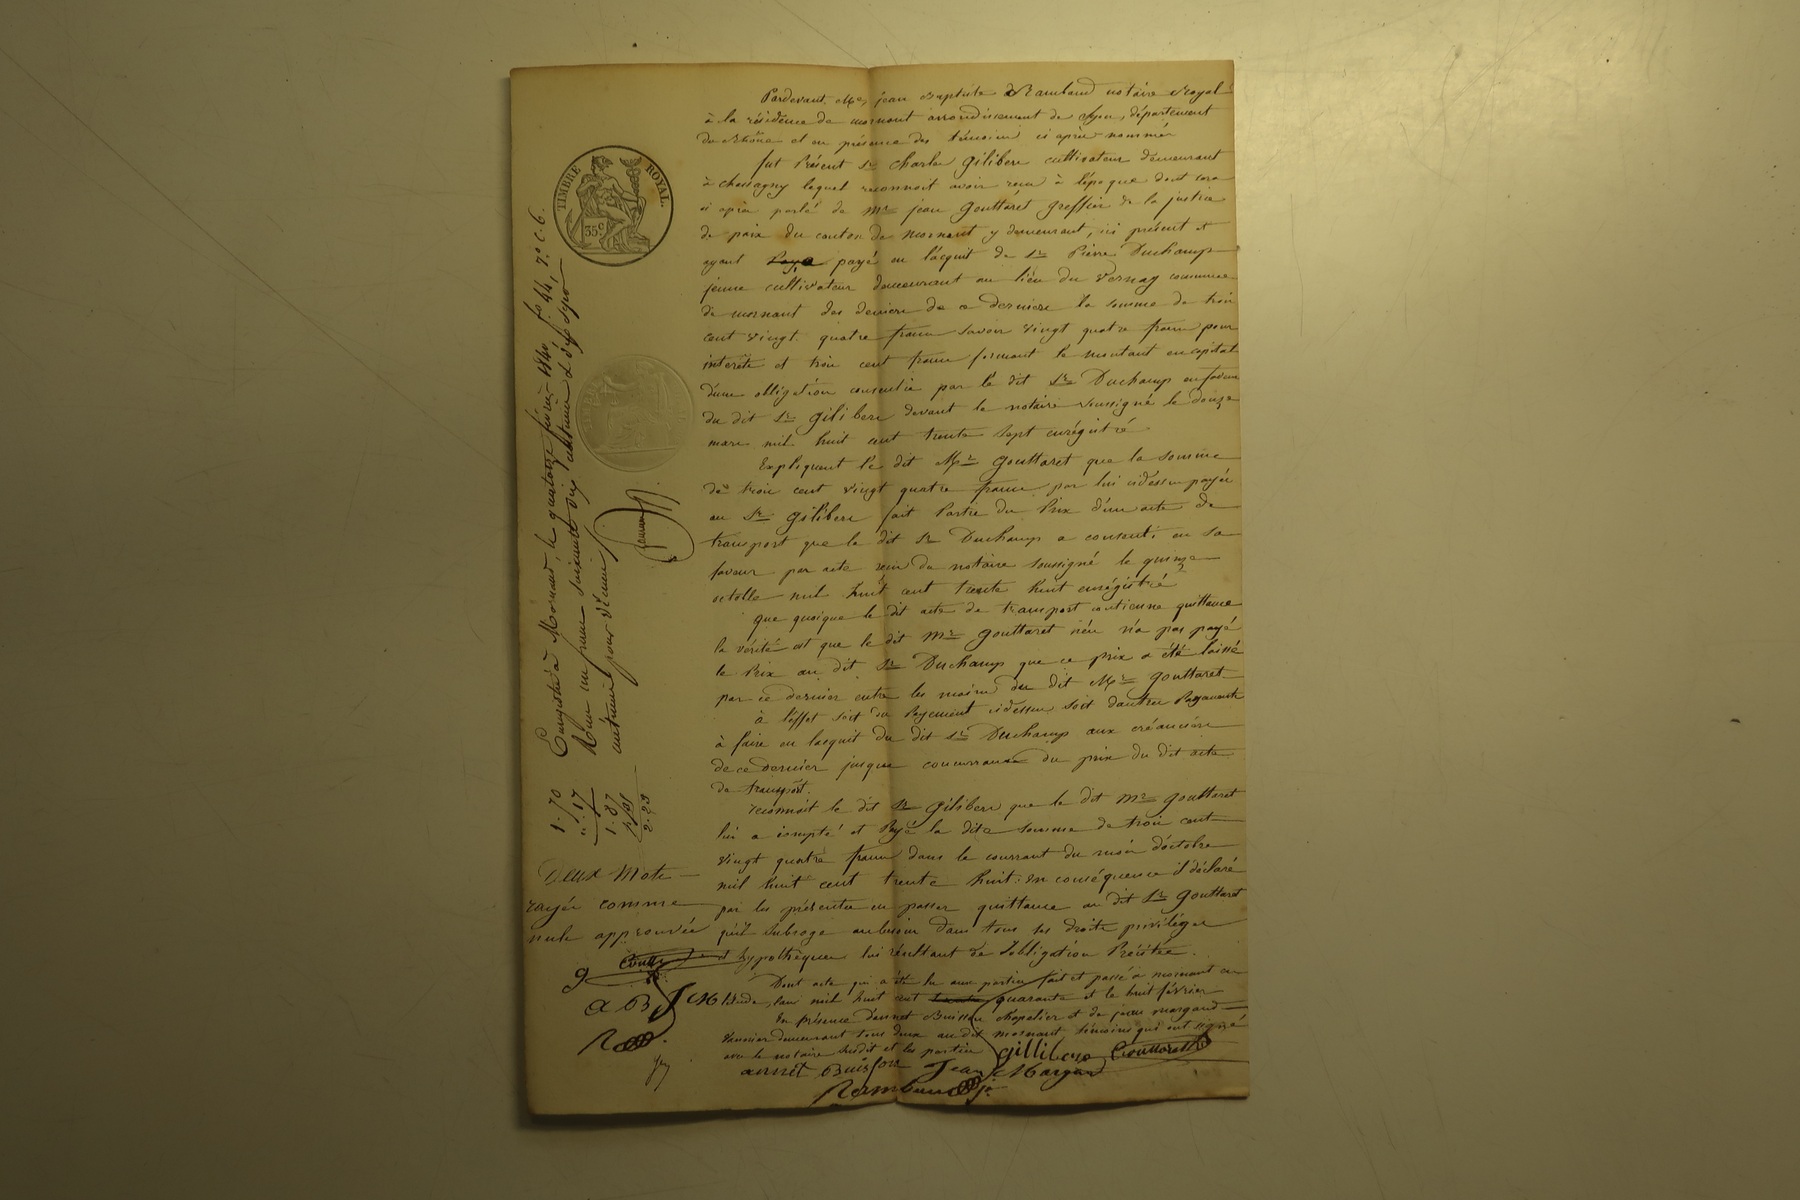 Pardevant Me jean Baptiste Rambaud notaire Royal
à la résidence de mornant arrondissement de Lyon, département
du Rhône et en présence des témoins ci après nommés
fut Présent Sr Charles Giliberr cultivateur demeurant
à chassagny lequel reconnoit avoir recu à l'époque dont sera
ci après parlé de Mr jean Gouttaret greffier de la justice
de paix du canton de mornant y demeurant, ici présent et
ayant payé en l'acquit de Sr Pierre Duchamp
jeune cultivateur demeurant au lieu du Vernay commune
de mornant des deniers de ce dernier la somme de trois
cent vingt quatre francs savoir vingt quatre francs pour
interêts et trois cent francs formant le montant en capital
d'une obligation consentie par le dit Sr Duchamp en faveur
du dit Sr Giliberr devant le notaire soussigné le douze
mars mil huit cent trente sept enrégistré
Expliquent le dit Mr Gouttaret que la somme
de trois cent vingt quatre francs par lui cidessus payée
au Sr Giliberr fait Partie du Prix d'un acte de
transport que le dit Sr Duchamp a consenti en sa
faveur par acte recu du notaire soussigné le quinze
octobre mil huit cent trente huit enrégistré
que quoique le dit acte de transport contienne quittance
la vérité est que le dit Mr Gouttaret n'en n'a pas payé
le Prix au dit Sr Duchamp que ce prix a été laissé
par ce dernier entre les mains du dit Mr Gouttaret
à l'effet soit du Payement cidessus, soit d'autres Payements
à faire en l'acquit du dit Sr Duchamp aux créanciers
de ce dernier jusque concurrance du prix du dit acte
de transport.
reconnoit le dit Sr Giliberr que le dit Mr Gouttaret
lui a compté et Payé la dite somme de trois cent
vingt quatre francs dans le courrant du mois d'octobre
mil huit cent trente huit. en conséquence il déclare
par les présentes en passer quittance au dit Sr Gouttaret
qu'il subroge aubesoin dans tous ses droits privilèges
et hypothèques lui résultant de l'obligation Précitée.
Dont acte qui a été lu aux parties fait et passé à mornant en
l'étude, l'an mil huit cent quarante et le huit février
En présence d'annet Buisson chapelier et de jean margand
demeurant tous deux au dit mornant témoins qui ont signé
avec le notaire susdit et les parties
Gilliberr Gouttaret
annet Buisson Jean Margand
Rambaud
TIMBRE ROYAL.
35 c
Enregistré à Mornant, le quatorze février 1840 fo 44, Vo C. 6.
Reçu un franc soixante dix centimes
centimes pour décime
1.70
".17
1.87
2.22
Deux Mots
rayés comme
nuls approuvés
G
a B J M
R